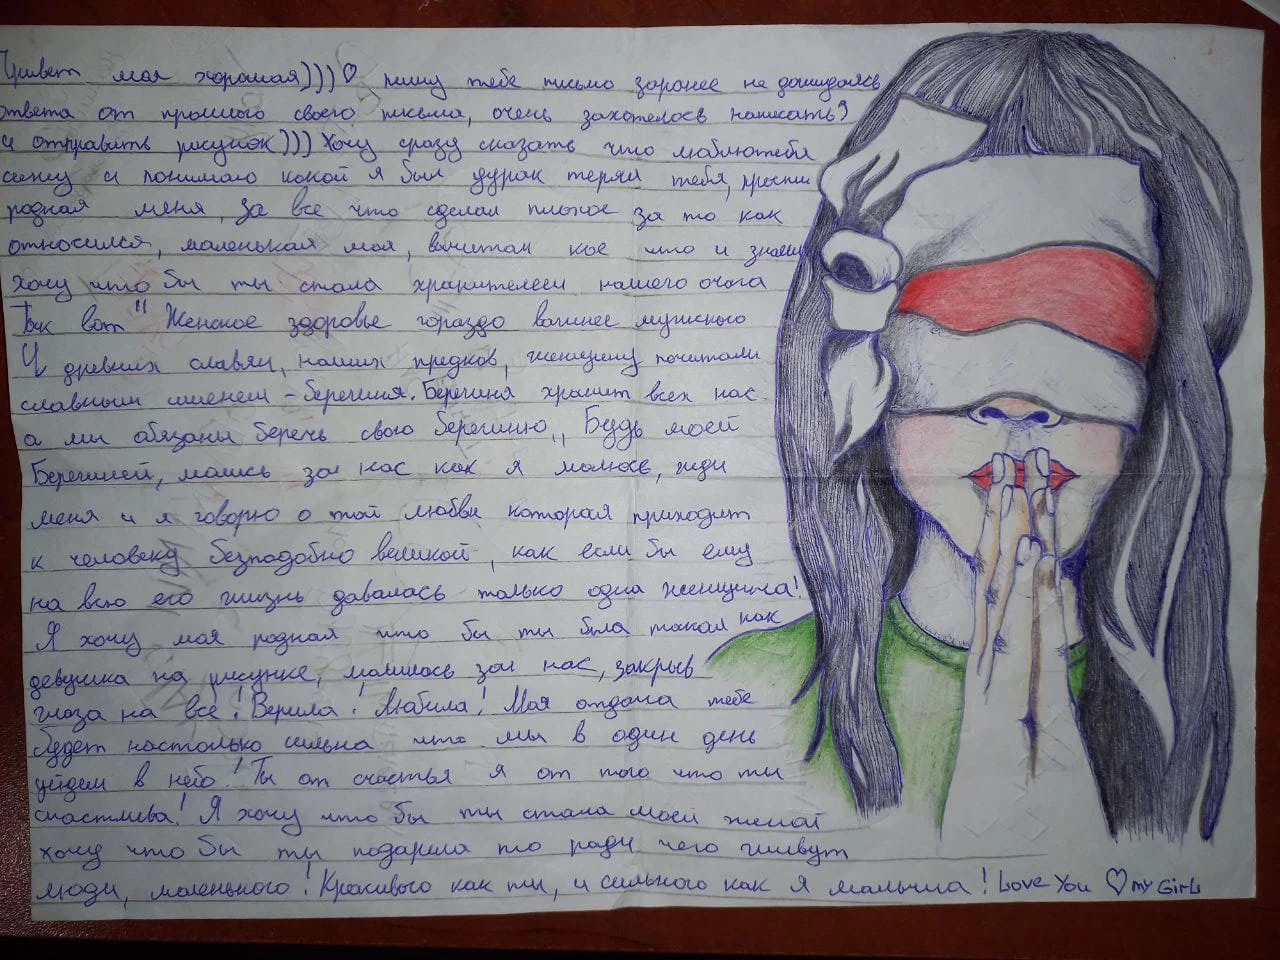 Привет моя хорошая)))♡ пишу тебе письмо заранее не дожидаясь
ответа от прошлого своего письма, очень захотелось написать)
и отправить рисунок))) Хочу сразу сказать что люблютебя
сижу и понимаю какой я был дурак терял тебя, прости
родная меня, за все что сделал плохое за то как
относился, маленькая моя, вычитал кое что и знаешь
хочу что бы ты стала хранителем нашего очага
Так вот "Женское здоровье гораздо важнее мужского
У древних славян, наших предков, женщину почитали
славным именем - берегиня. Берегиня хранит всех нас
а мы обязаны беречь свою берегиню" Будь моей
Берегиней, молись за нас как я молюсь, жди
меня и я говорю о той любви которая приходит
к человеку безподобно великой, как если бы ему
на всю его жизнь давалась только одна женщина!
Я хочу моя родная что бы ты была такая как
девушка на рисунке, молилась за нас, закрыв
глаза на все! Верила! Любила! Моя отдача тебе
будет настолько сильна что мы в один день
уйдем в небо! Ты от счастья я от того что ты
счастлива! Я хочу что бы ты стала моей женой
хочу что бы ты подарила то ради чего живут
люди, маленького! Красивого как ты, и сильного как я малыша! Love You ♡ my Girl